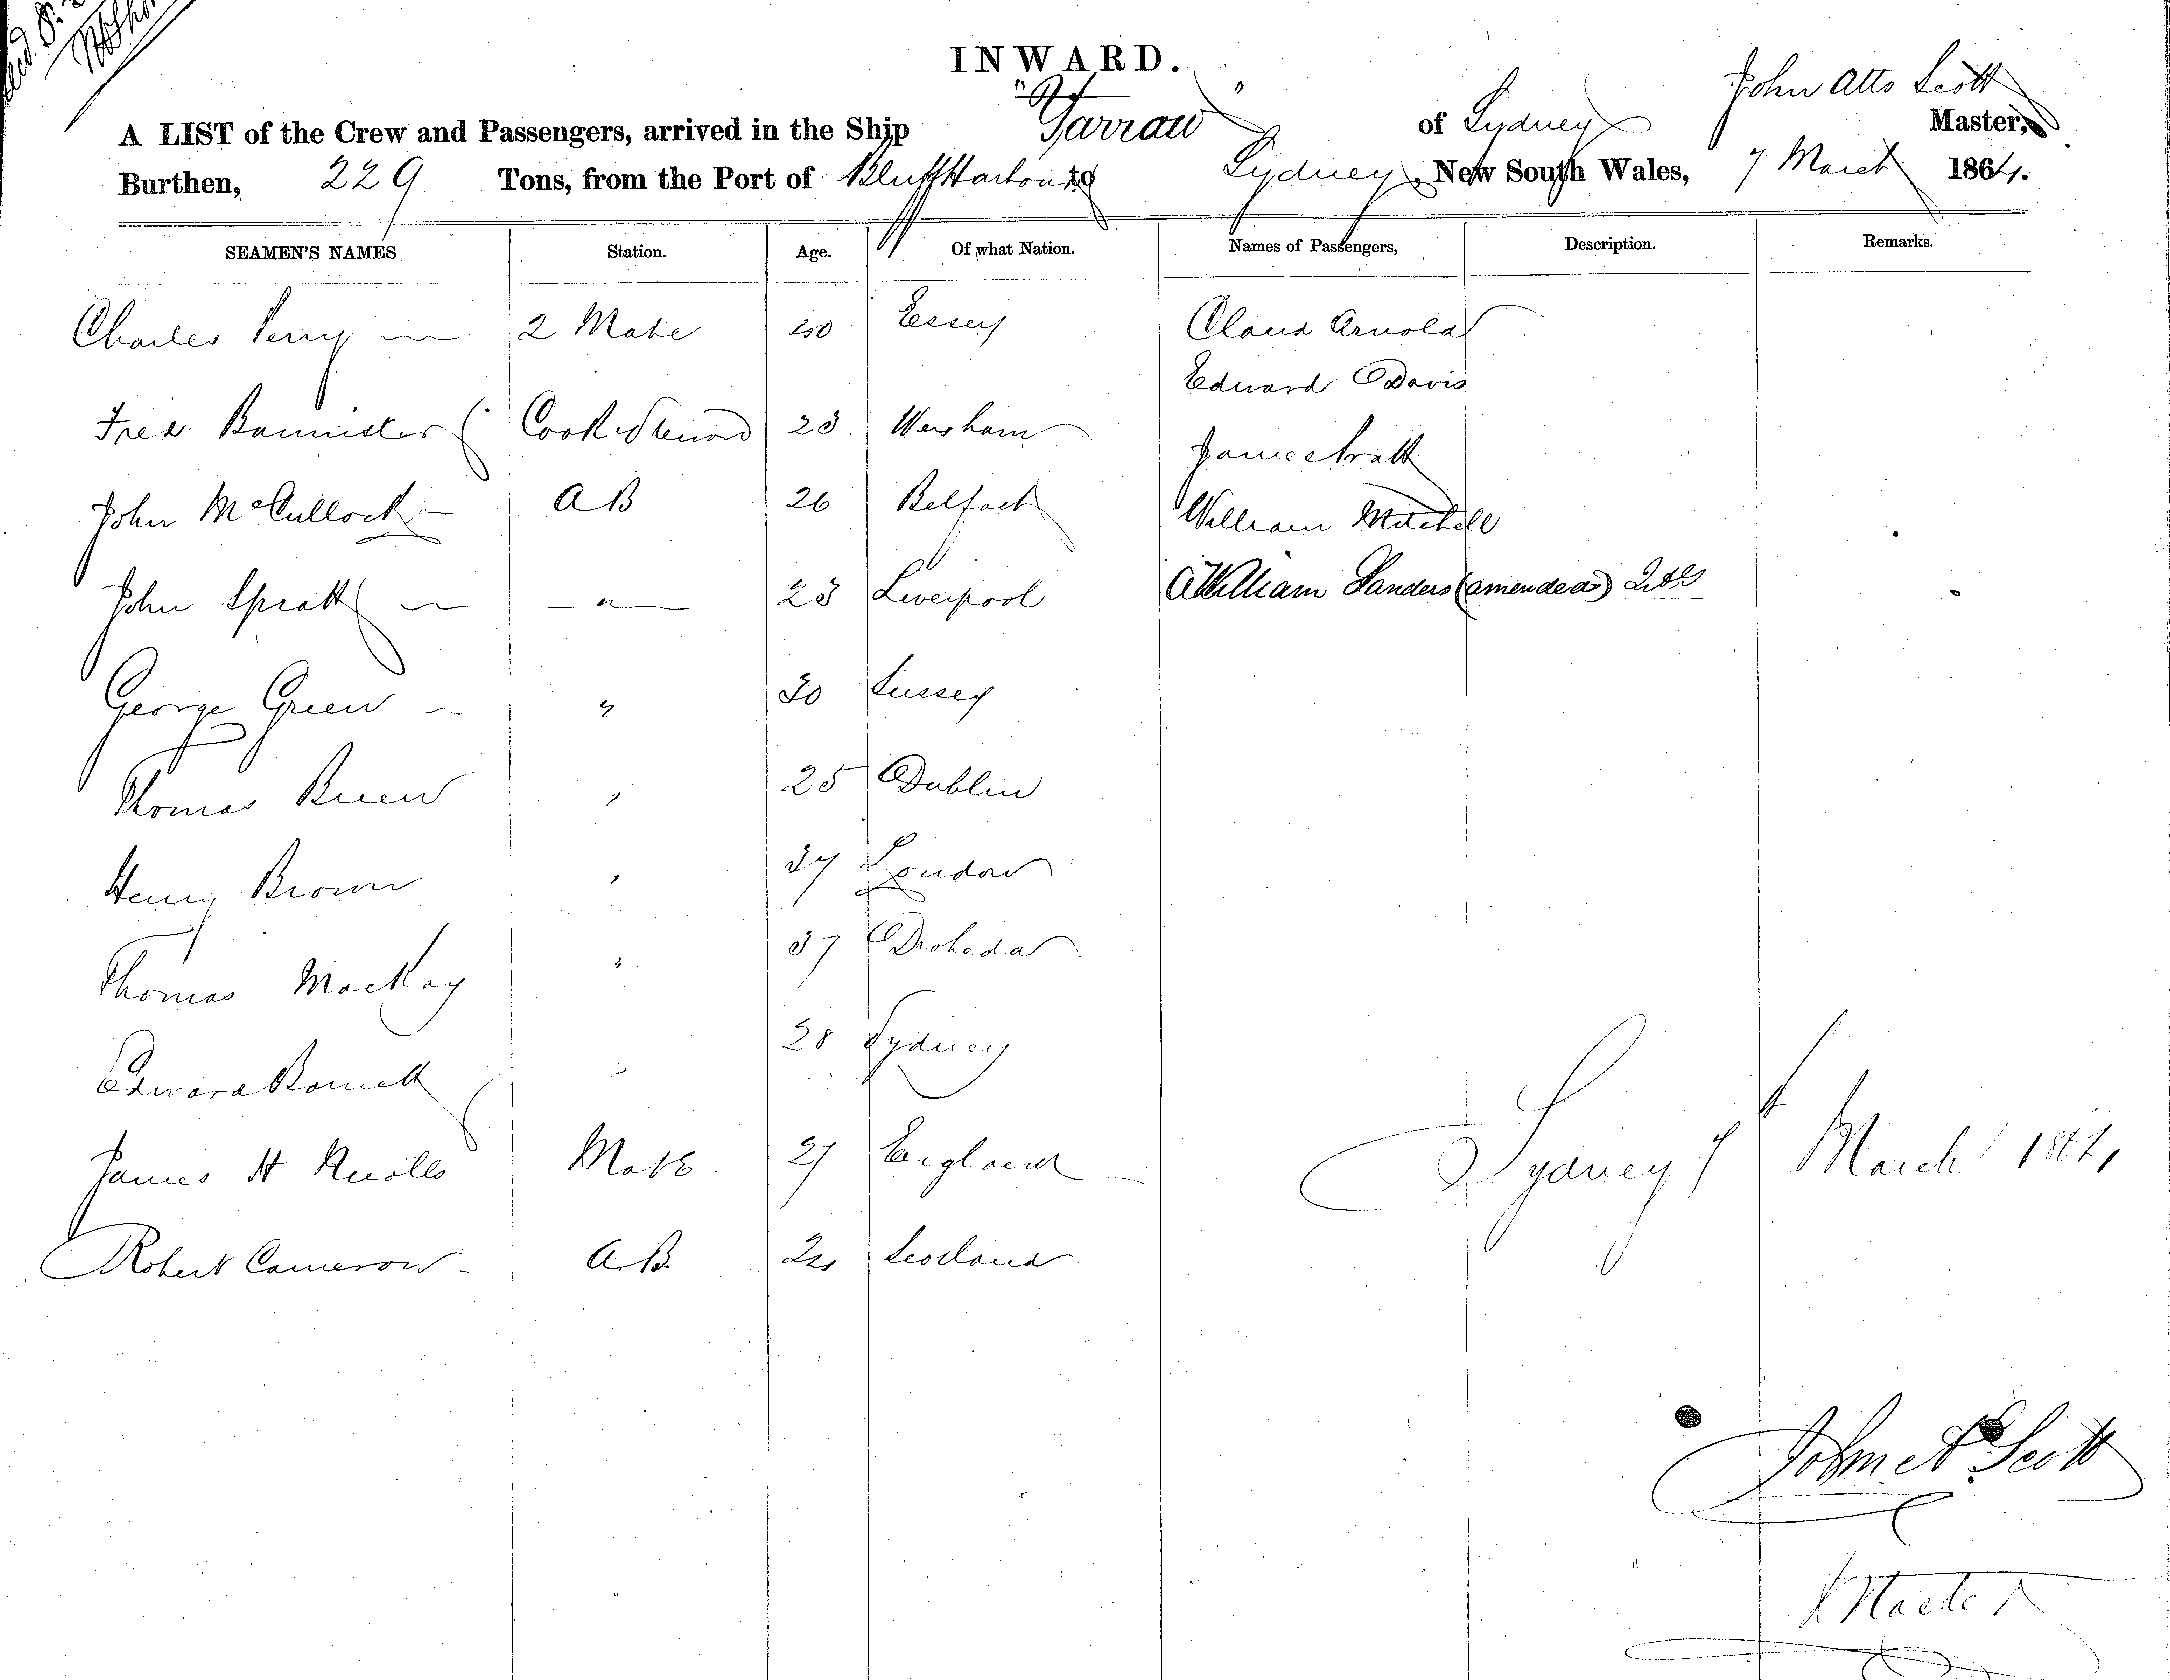 INWARD.
John Atto Scott
A LIST of the Crew and Passengers, arrived in the Ship "Yarrow" of Sydney Master,
Burthen, 229 Tons, from the Port of Bluff Harbour to Sydney, New South Wales, 7 March 1864.
SEAMEN'S NAMES Station. Age. Of what Nation. Names of Passengers, Description. Remarks.
Charles Perry 2 Mate 40 Essex Claud Arnold
Edward Davis
Fred Bannister Cook & Steward 23 Wareham
James Pratt
John McCullock AB 26 Belfast
William Mitchell
John Spratt " 23 Liverpool William Sanders (amended)
George Green " 30 Sussex
Thomas Breen " 25 Dublin
Henry Brown " 37 London
Thomas MacKay " 37 Droheda
Edward Bonnett " 28 Sydney
James H Knolls Mate 27 England
Sydney 7th March 1864
Robert Cameron A.B. 24 Scotland
John A Scott
Master